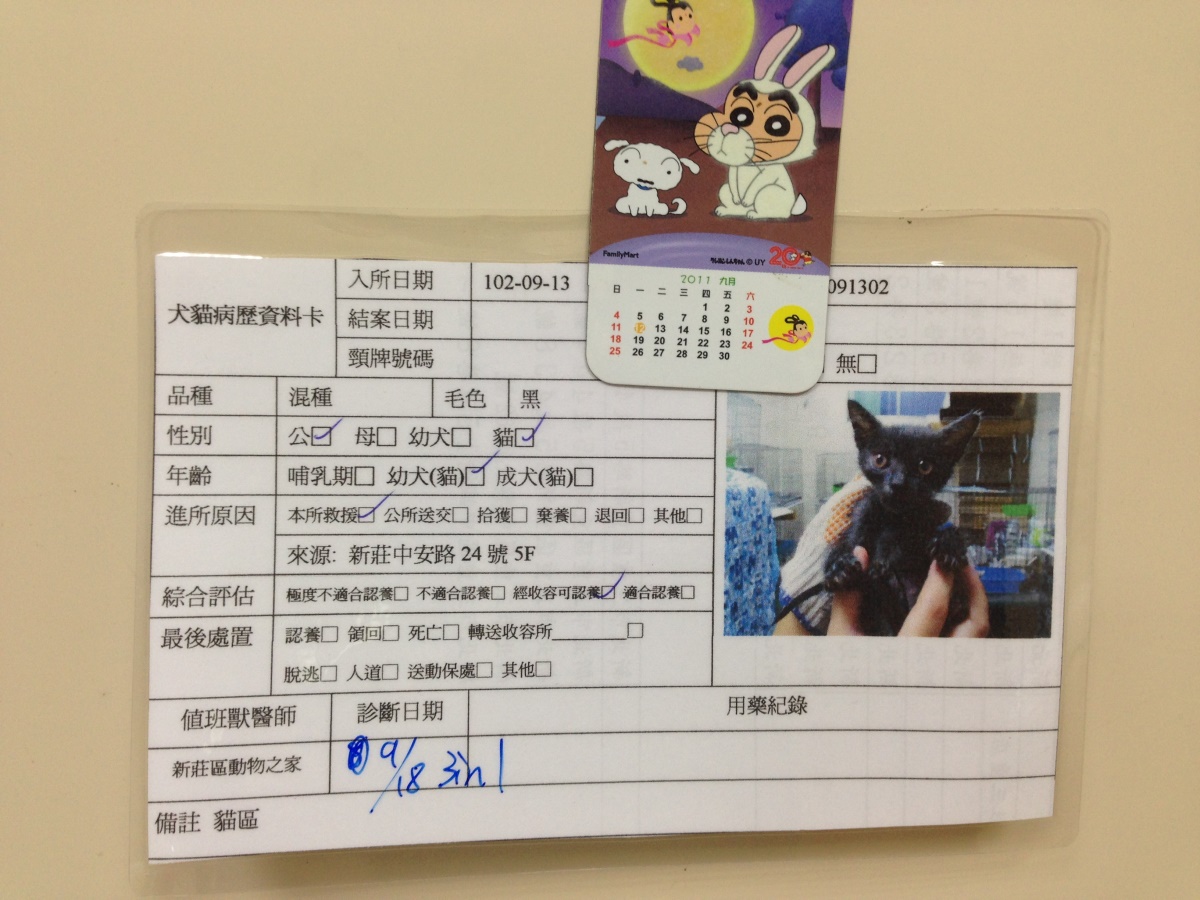 FamilyMart
©UY 20
2011 九月
日 一 二 三 四 五 六
1 2 3
4 5 6 7 8 9 10
11 12 13 14 15 16 17
18 19 20 21 22 23 24
25 26 27 28 29 30
犬貓病歷資料卡
入所日期 102-09-13 091302
結案日期
頸牌號碼 無□
品種 混種 毛色 黑
性別 公☑ 母□ 幼犬□ 貓☑
年齡 哺乳期□ 幼犬(貓)☑ 成犬(貓)□
進所原因 本所救援☑ 公所送交□ 拾獲□ 棄養□ 退回□ 其他□
來源: 新莊中安路 24 號 5F
綜合評估 極度不適合認養□ 不適合認養□ 經收容可認養☑ 適合認養□
最後處置 認養□ 領回□ 死亡□ 轉送收容所________□
脫逃□ 人道□ 送動保處□ 其他□
值班獸醫師 診斷日期 用藥紀錄
新莊區動物之家 9/18 3in1
備註 貓區